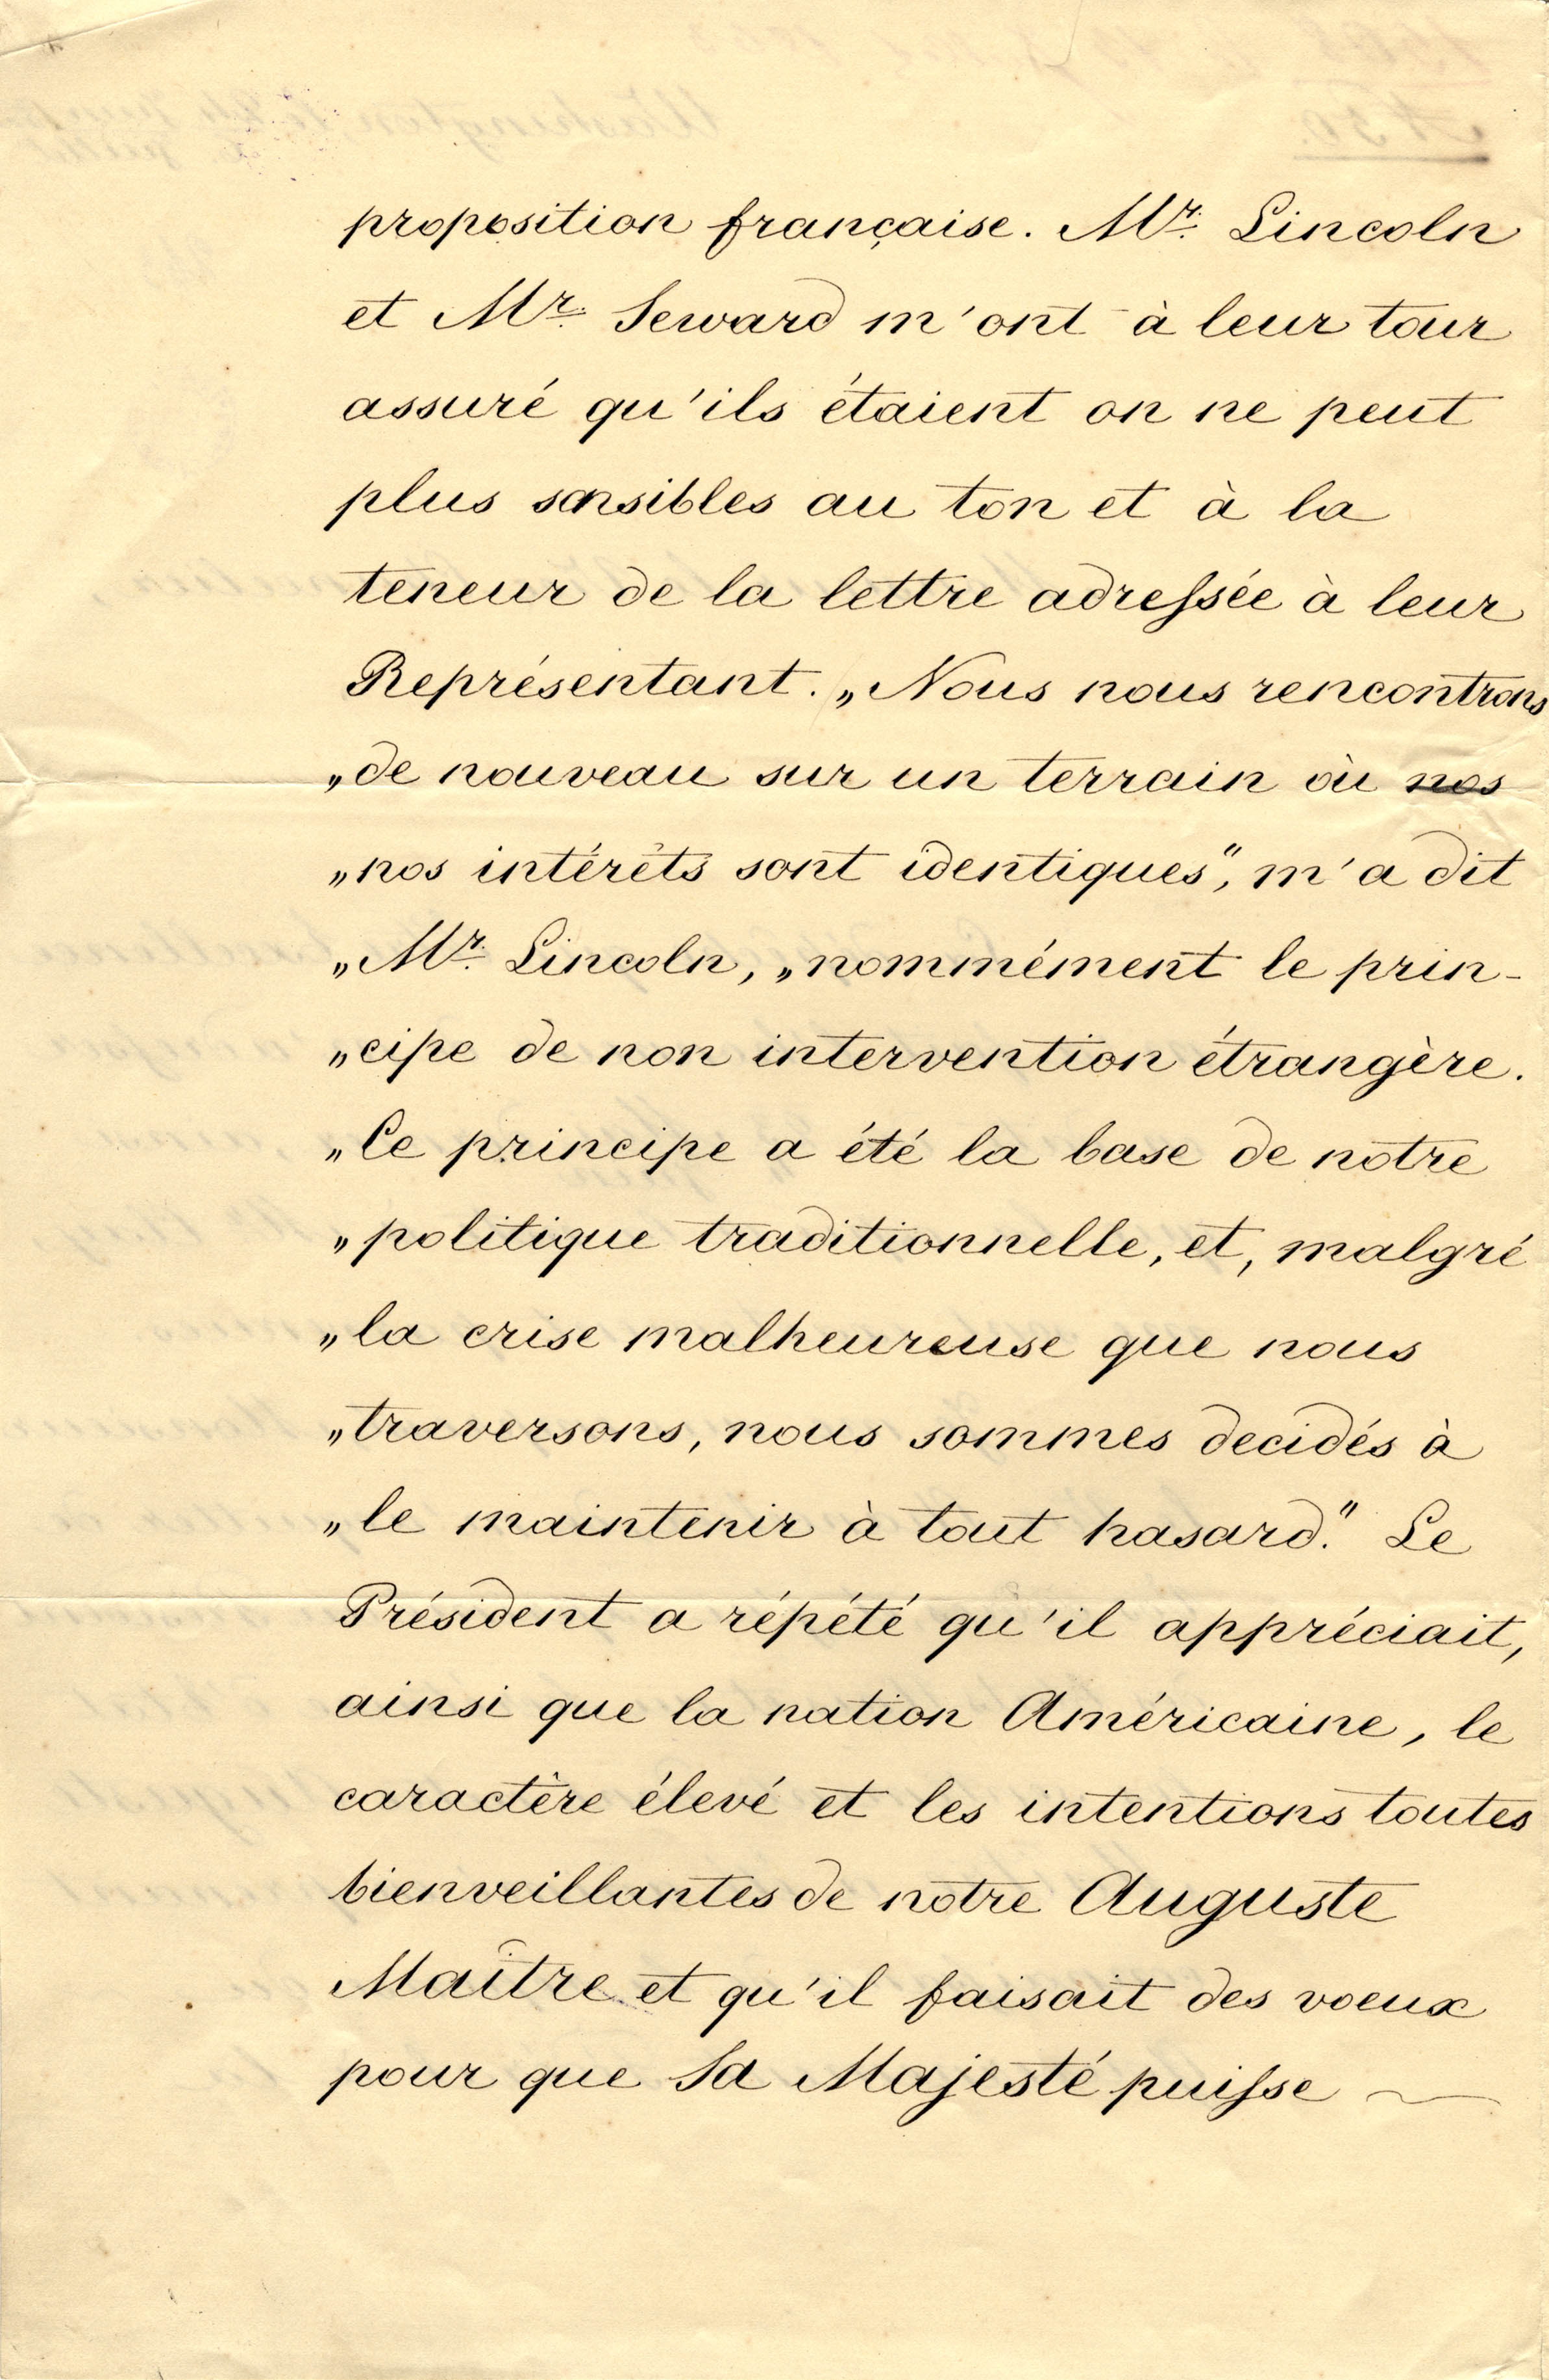 proposition française. Mr. Lincoln
et Mr. Seward m'ont à leur tour
assuré qu'ils étaient on ne peut
plus sensibles au ton et à la
teneur de la lettre adreſsée à leur
Représentant. „Nous nous rencontrons
„de nouveau sur un terrain où nos
„nos intérêts sont identiques", m'a dit
„Mr. Lincoln, „nommément le prin-
„cipe de non intervention étrangère.
„Ce principe a été la base de notre
„politique traditionnelle, et, malgré
„la crise malheureuse que nous
„traversons, nous sommes decidés à
„le maintenir à tout hasard." Le
Président a répété qu'il appréciait,
ainsi que la nation Américaine, le
caractère élevé et les intentions toutes
bienveillantes de notre Auguste
Maître et qu'il faisait des voeux
pour que Sa Majesté puiſse